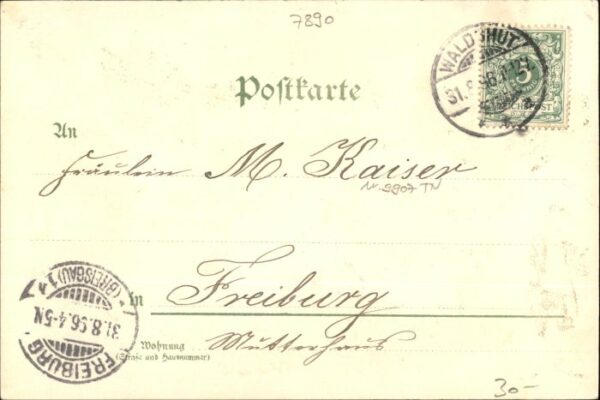 7890
WALDSHUT
31.8.96.
5
REICHSPOST
Postkarte
An
Fräulein M. Kaiser
Nr. 9907 TN
in Freiburg
Wohnung
(Straße und Hausnummer)
Mutterhaus
FREIBURG
31.8.96.4-5N
(BREISGAU) 1
30-